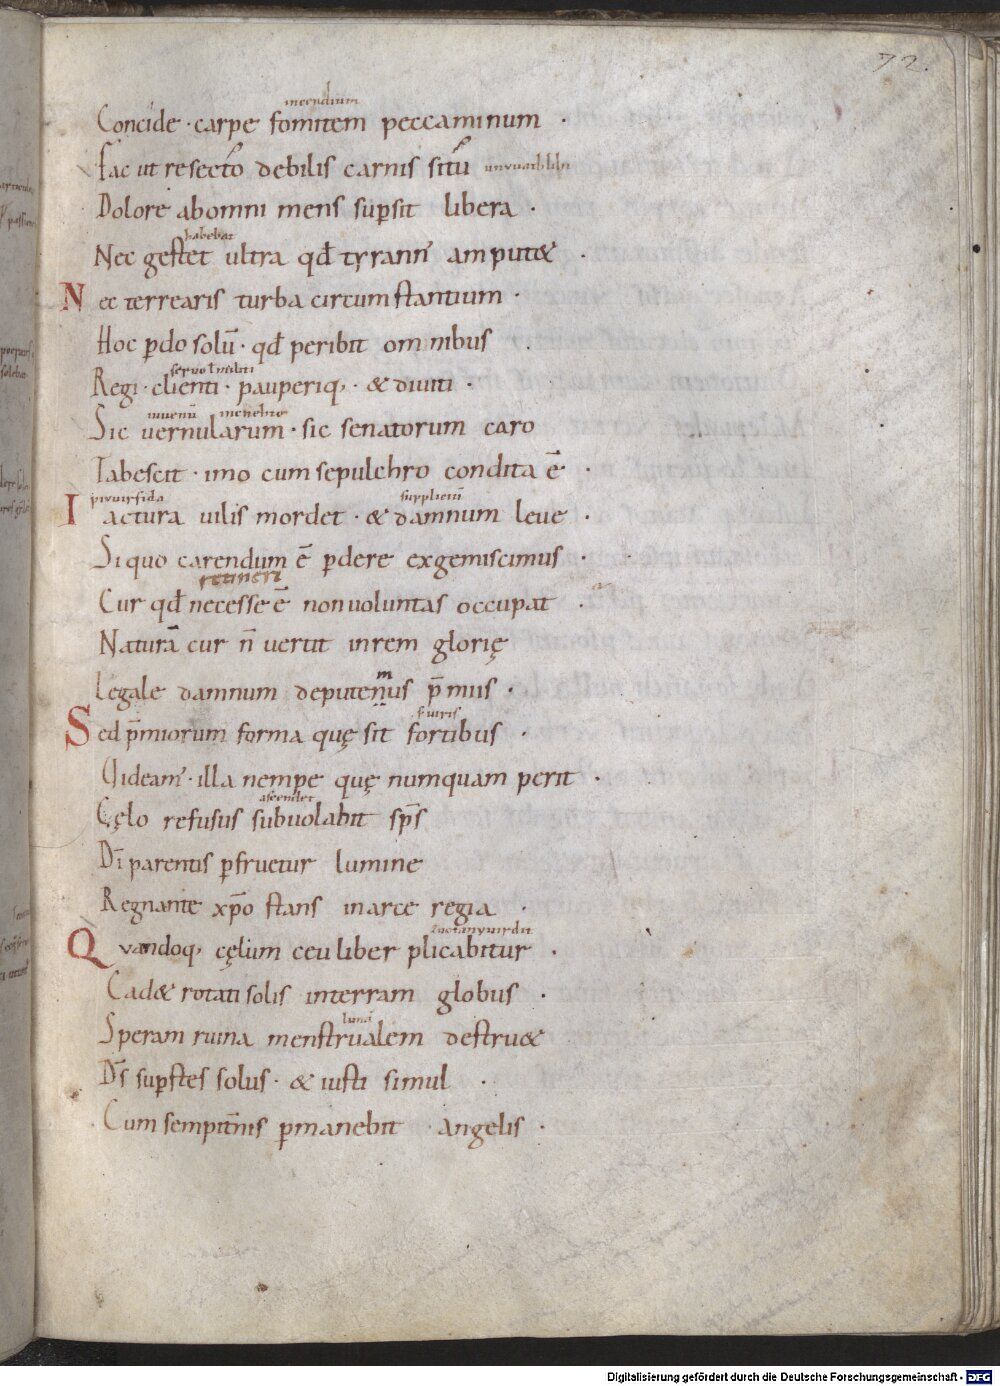 72.
incendium
Concide · carpe fomitem peccaminum ·
Fac ut resecto debilis carnis situ
Dolore abomni mens sup̄sit libera ·
habebat
Nec gestet ultra qđ tyrann̄ amputet ·
Nec terrearis turba circumstantium ·
Hoc ꝑdo solū · qđ peribit omnibus ·
Regi · clienti · pauperiq, · & diuiti ·
Sic vernularum · sic senatorum caro
Tabescit · imo cum sepulchro condita ē ·
Iactura uilis mordet · & damnum leue ·
Si quo carendum ē ꝑdere exgemiscimus ·
Cur qđ necesse ē non uoluntas occupat ·
Naturā cur n̄ uertit inrem glorię
m
Legale damnum deputenus p̄miis ·
Sed p̄miorum forma quę sit fortibus ·
Videam̄ · illa nempe quę numquam perit ·
Cęlo refusus subuolabit sp̄s
Dī parentis ꝑfruetur lumine
Regnante xp̄o stans inarce regia ·
Quandoq, cęlum ceu liber plicabitur ·
Cadet rotati solis interram globus ·
lunā
Speram ruina menstrualem destruet
Ds̄ sup̄stes solus · & iusti simul ·
Cum sempit̄nis ꝑmanebit angelis ·
Digitalisierung gefördert durch die Deutsche Forschungsgemeinschaft - DFG